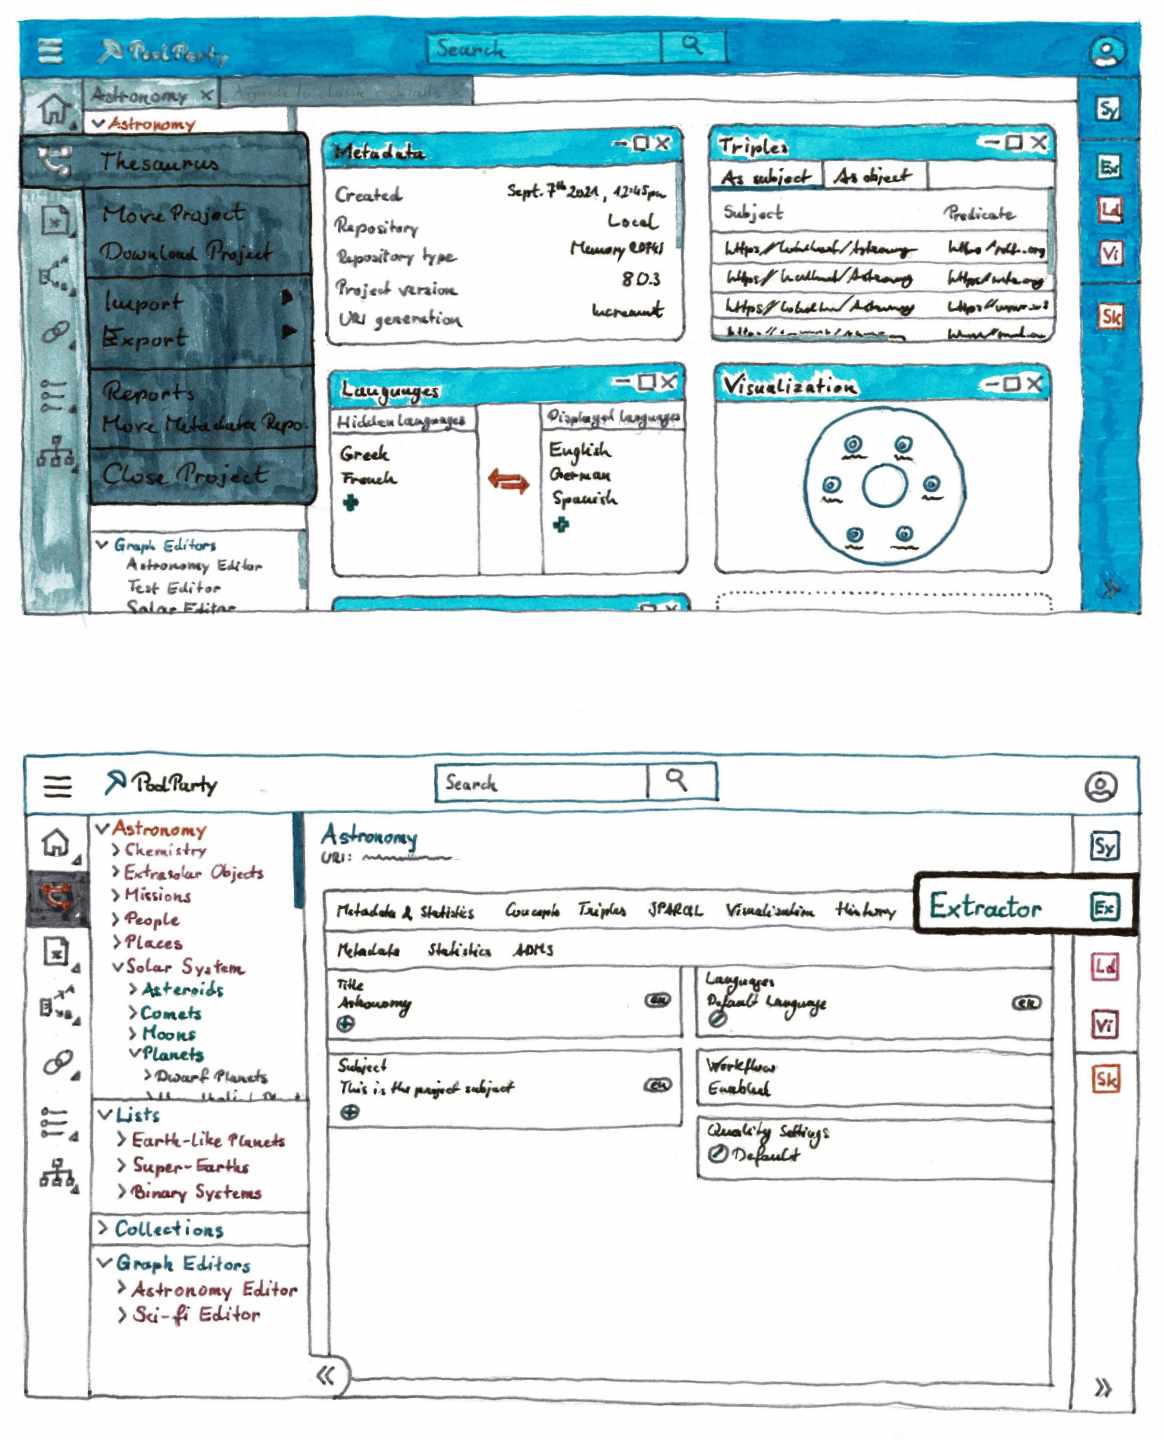 PoolParty
Search
Astronomy ×
Astronomy
Thesaurus
Move Project
Download Project
Import
Export
Reports
More Metadata Repo.
Close Project
Graph Editors
Astronomy Editor
Test Editor
Solar Editor
Metadata
Created Sept. 7th 2021, 12:45pm
Repository Local
Repository type Memory
Project version 8.0.3
URI generation Increment
Triples
As subject As object
Subject Predicate
Languages
Hidden languages Displayed languages
Greek English
French German
Spanish
Visualization
Sy
Ex
Ld
Vi
Sk
PoolParty
Search
Astronomy
Chemistry
Extrasolar Objects
Missions
People
Places
Solar System
Asteroids
Comets
Moons
Planets
Dwarf Planets
Lists
Earth-like Planets
Super-Earths
Binary Systems
Collections
Graph Editors
Astronomy Editor
Sci-fi Editor
Astronomy
URI:
Metadata & Statistics Concepts Triples SPARQL Visualization History
Metadata Statistics ADMS
Title
Astronomy en
Subject
This is the project subject en
Languages
Default Language en
Workflow
Enabled
Quality Settings
Default
Sy
Extractor Ex
Ld
Vi
Sk